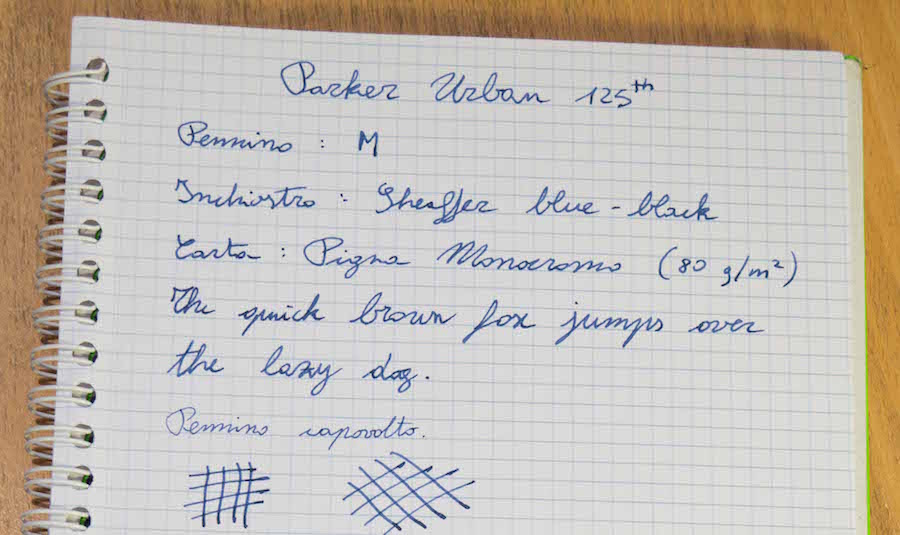 Parker Urban 125th
Pennino : M
Inchiostro : Sheaffer blue-black
Carta : Pigna Monocromo (80 g/m²)
The quick brown fox jumps over
the lazy dog.
Pennino capovolto.